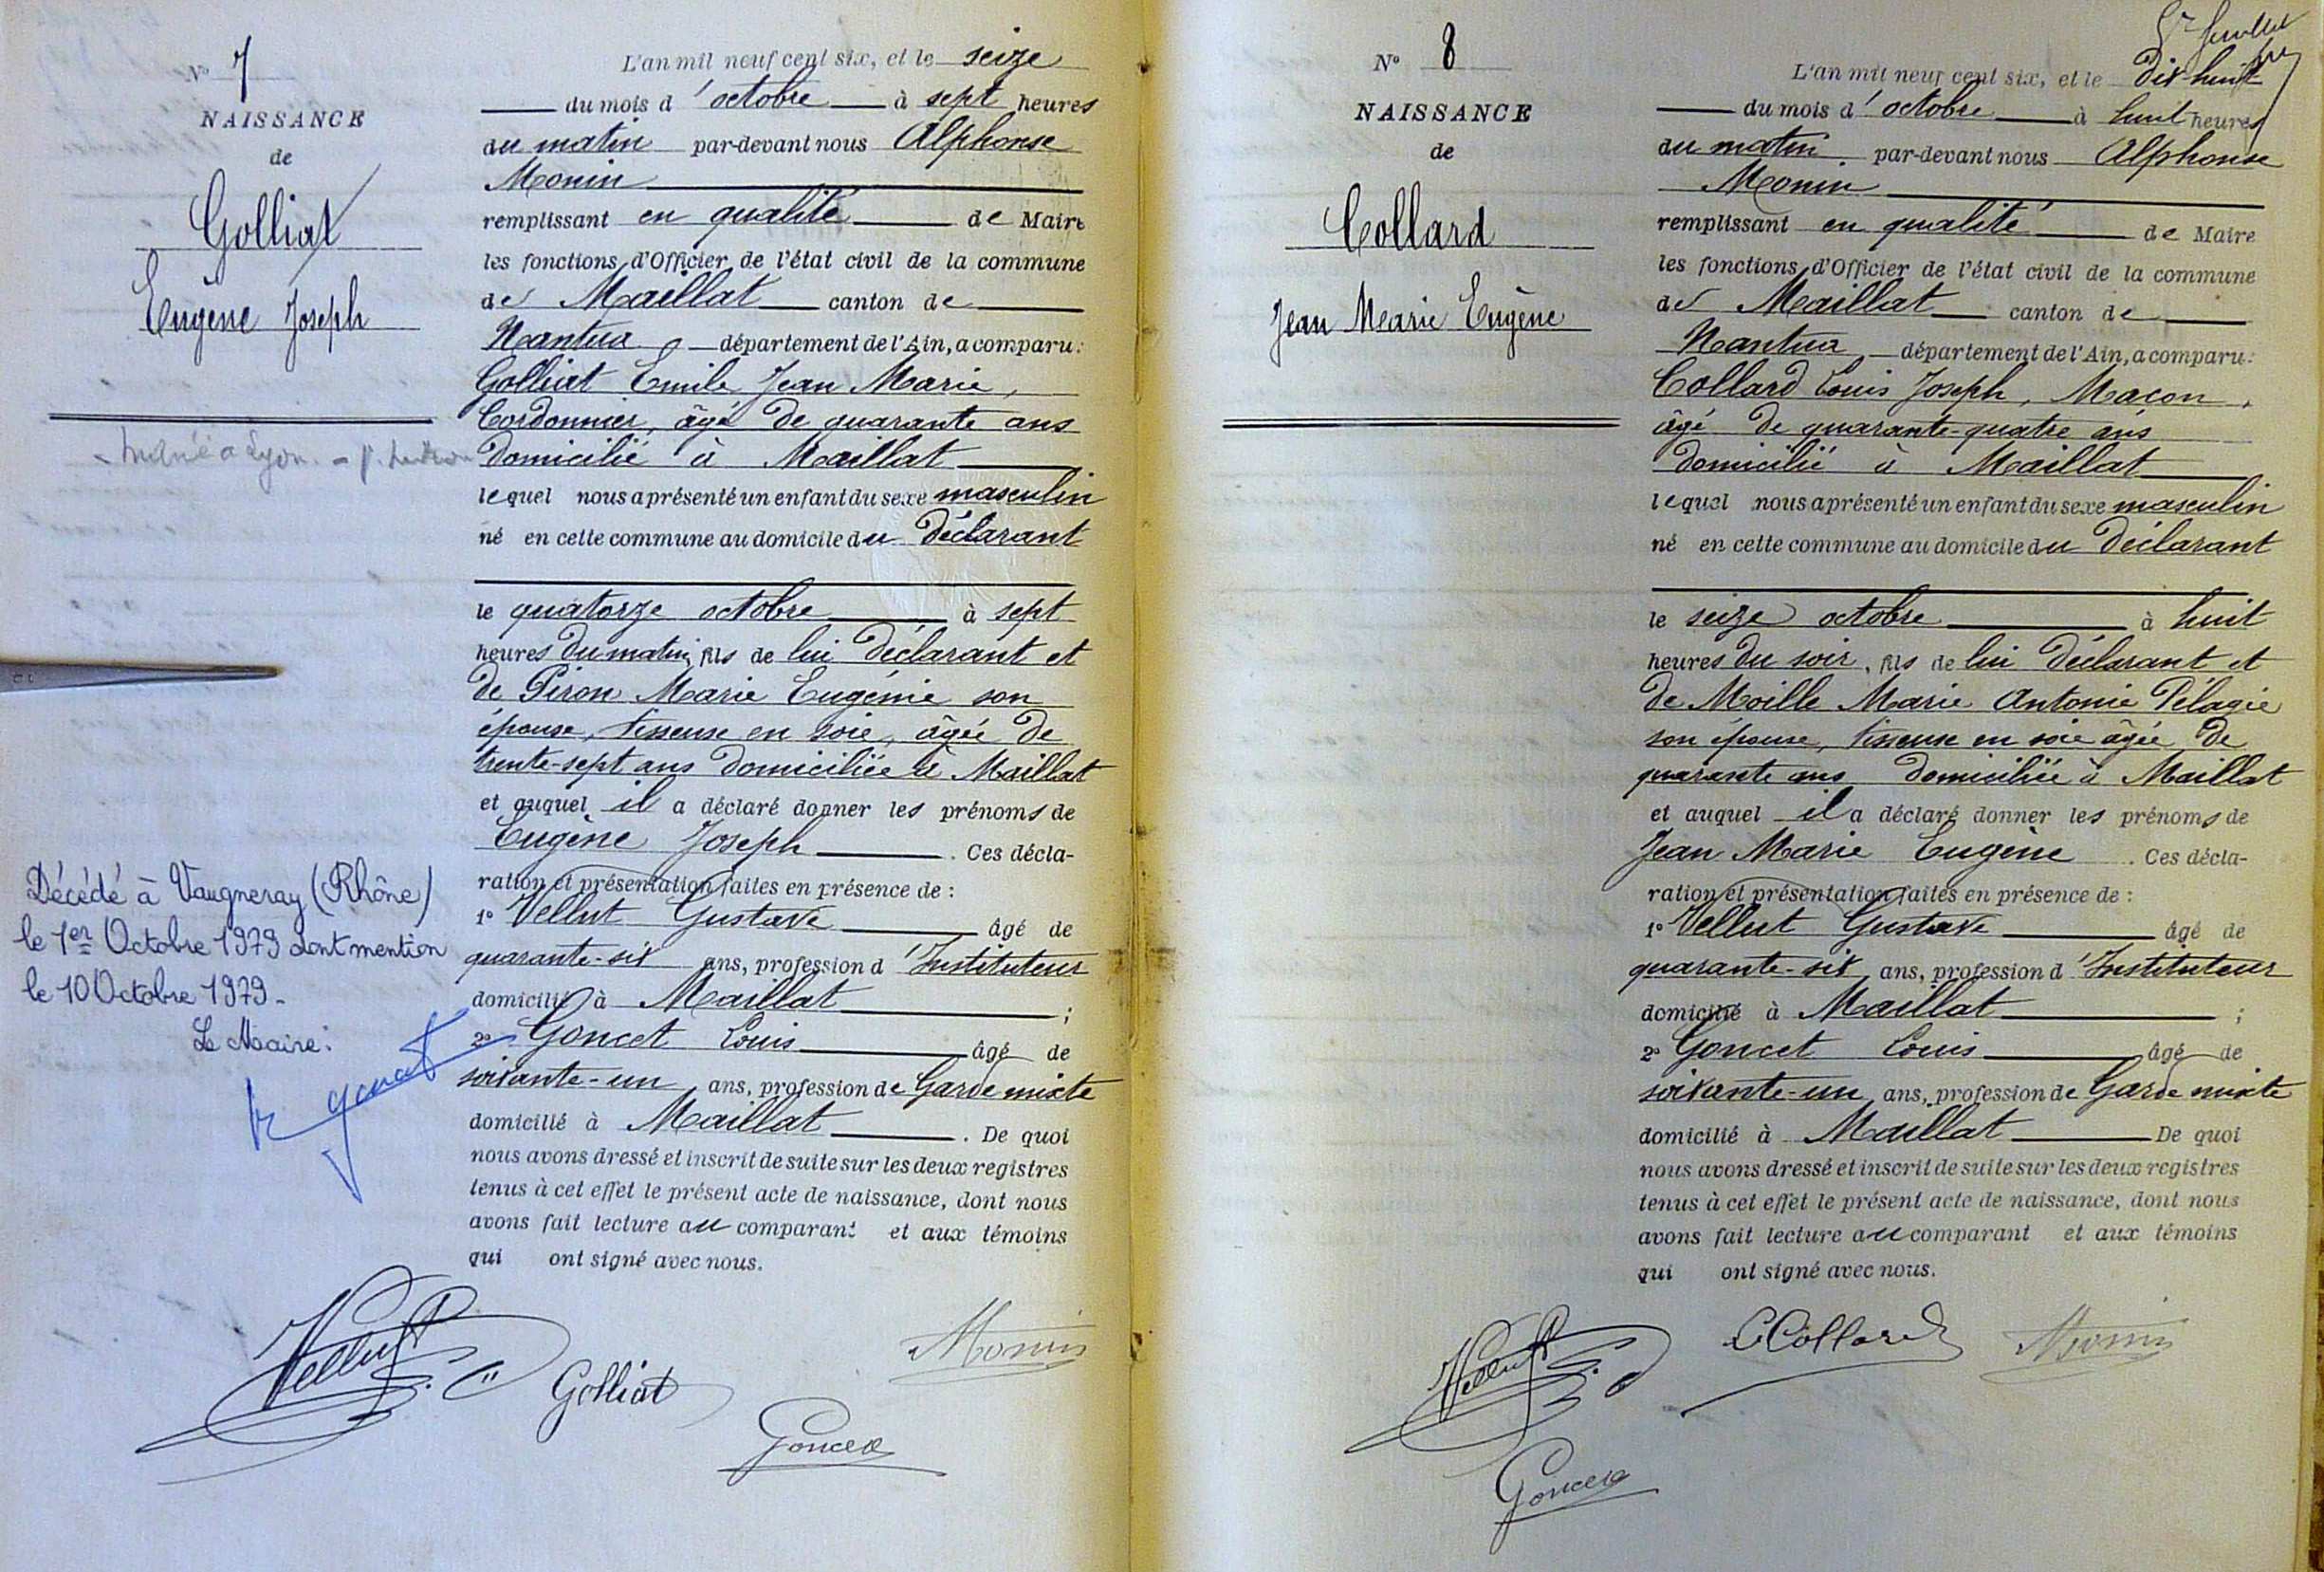 N° 7
NAISSANCE
de
Golliat
Eugène Joseph
Décédé à Vaugneray (Rhône)
le 1er Octobre 1979 dont mention
le 10 Octobre 1979.
Le Maire:
L'an mil neuf cent six, et le seize
du mois d'octobre à sept heures
du matin par-devant nous Alphonse
Monin
remplissant en qualité de Maire
les fonctions d'Officier de l'état civil de la commune
de Maillat canton de
Nantua, département de l'Ain, a comparu:
Golliat Emile, Jean Marie,
Cordonnier, âgé de quarante ans
domicilié à Maillat
lequel nous a présenté un enfant du sexe masculin
né en cette commune au domicile du déclarant
le quatorze octobre à sept
heures du matin, fils de lui déclarant et
de Piron Marie Eugénie son
épouse, tisseuse en soie, âgée de
trente-sept ans domiciliée à Maillat
et auquel il a déclaré donner les prénoms de
Eugène Joseph. Ces décla-
ration et présentation faites en présence de :
1° Vellut Gustave âgé de
quarante-six ans, profession d'Instituteur
domicilié à Maillat ;
2° Goncet Louis âgé de
soixante-un ans, profession de Garde mixte
domicilié à Maillat. De quoi
nous avons dressé et inscrit de suite sur les deux registres
tenus à cet effet le présent acte de naissance, dont nous
avons fait lecture au comparant et aux témoins
qui ont signé avec nous.
Monin
Vellut
Golliat
Goncet
N° 8
NAISSANCE
de
Collard
Jean Marie Eugène
L'an mil neuf cent six, et le dix-huit
du mois d'octobre à huit heures
du matin par-devant nous Alphonse
Monin
remplissant en qualité de Maire
les fonctions d'Officier de l'état civil de la commune
de Maillat canton de
Nantua, département de l'Ain, a comparu:
Collard Louis Joseph, Maçon,
âgé de quarante-quatre ans
domicilié à Maillat
lequel nous a présenté un enfant du sexe masculin
né en cette commune au domicile du déclarant
le seize octobre à huit
heures du soir, fils de lui déclarant et
de Moille Marie Antonie Pélagie
son épouse, tisseuse en soie âgée de
quarante ans domiciliée à Maillat
et auquel il a déclaré donner les prénoms de
Jean Marie Eugène. Ces décla-
ration et présentation faites en présence de :
1° Vellut Gustave âgé de
quarante-six ans, profession d'Instituteur
domicilié à Maillat ;
2° Goncet Louis âgé de
soixante-un ans, profession de Garde mixte
domicilié à Maillat De quoi
nous avons dressé et inscrit de suite sur les deux registres
tenus à cet effet le présent acte de naissance, dont nous
avons fait lecture au comparant et aux témoins
qui ont signé avec nous.
L Collard
Monin
Vellut
Goncet